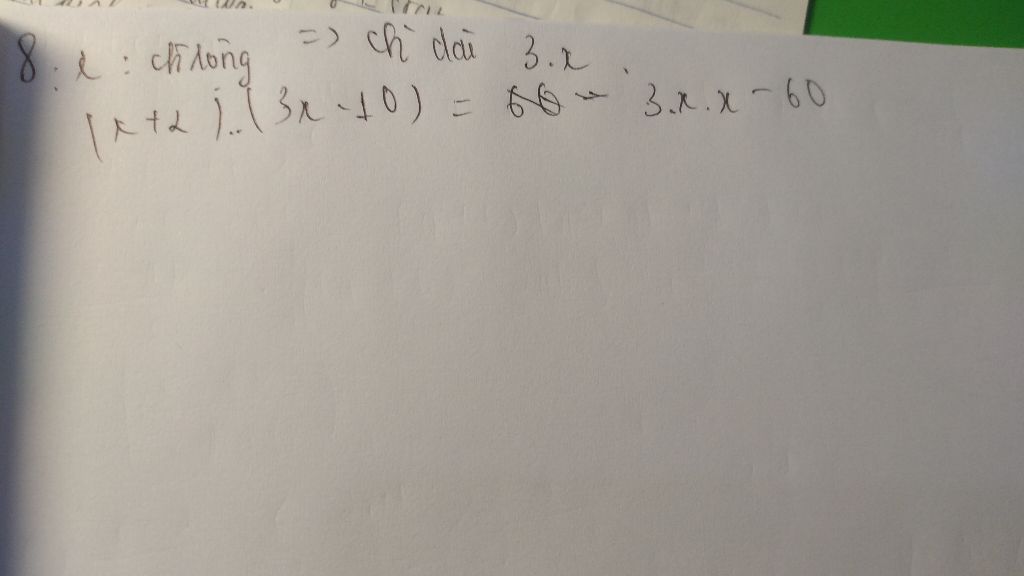 8: x : ch rộng => ch dài 3.x.
(x+2)..(3x-10) = 3.x.x-60